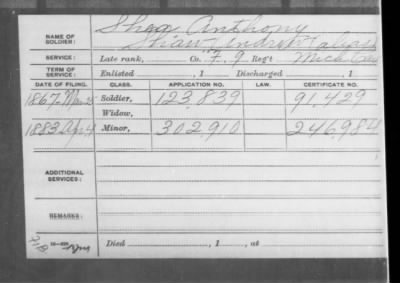 NAME OF SOLDIER: Shea Anthony
SERVICE: Late rank, Co. F. 9 Reg't Mich Cav
TERM OF SERVICE: Enlisted , 1 Discharged , 1
DATE OF FILING. CLASS. APPLICATION NO. LAW. CERTIFICATE NO.
1867 Soldier, 123,839 91,429
Widow,
1883 Minor, 302,910 246,984
ADDITIONAL SERVICES:
REMARKS:
Died , 1 , at